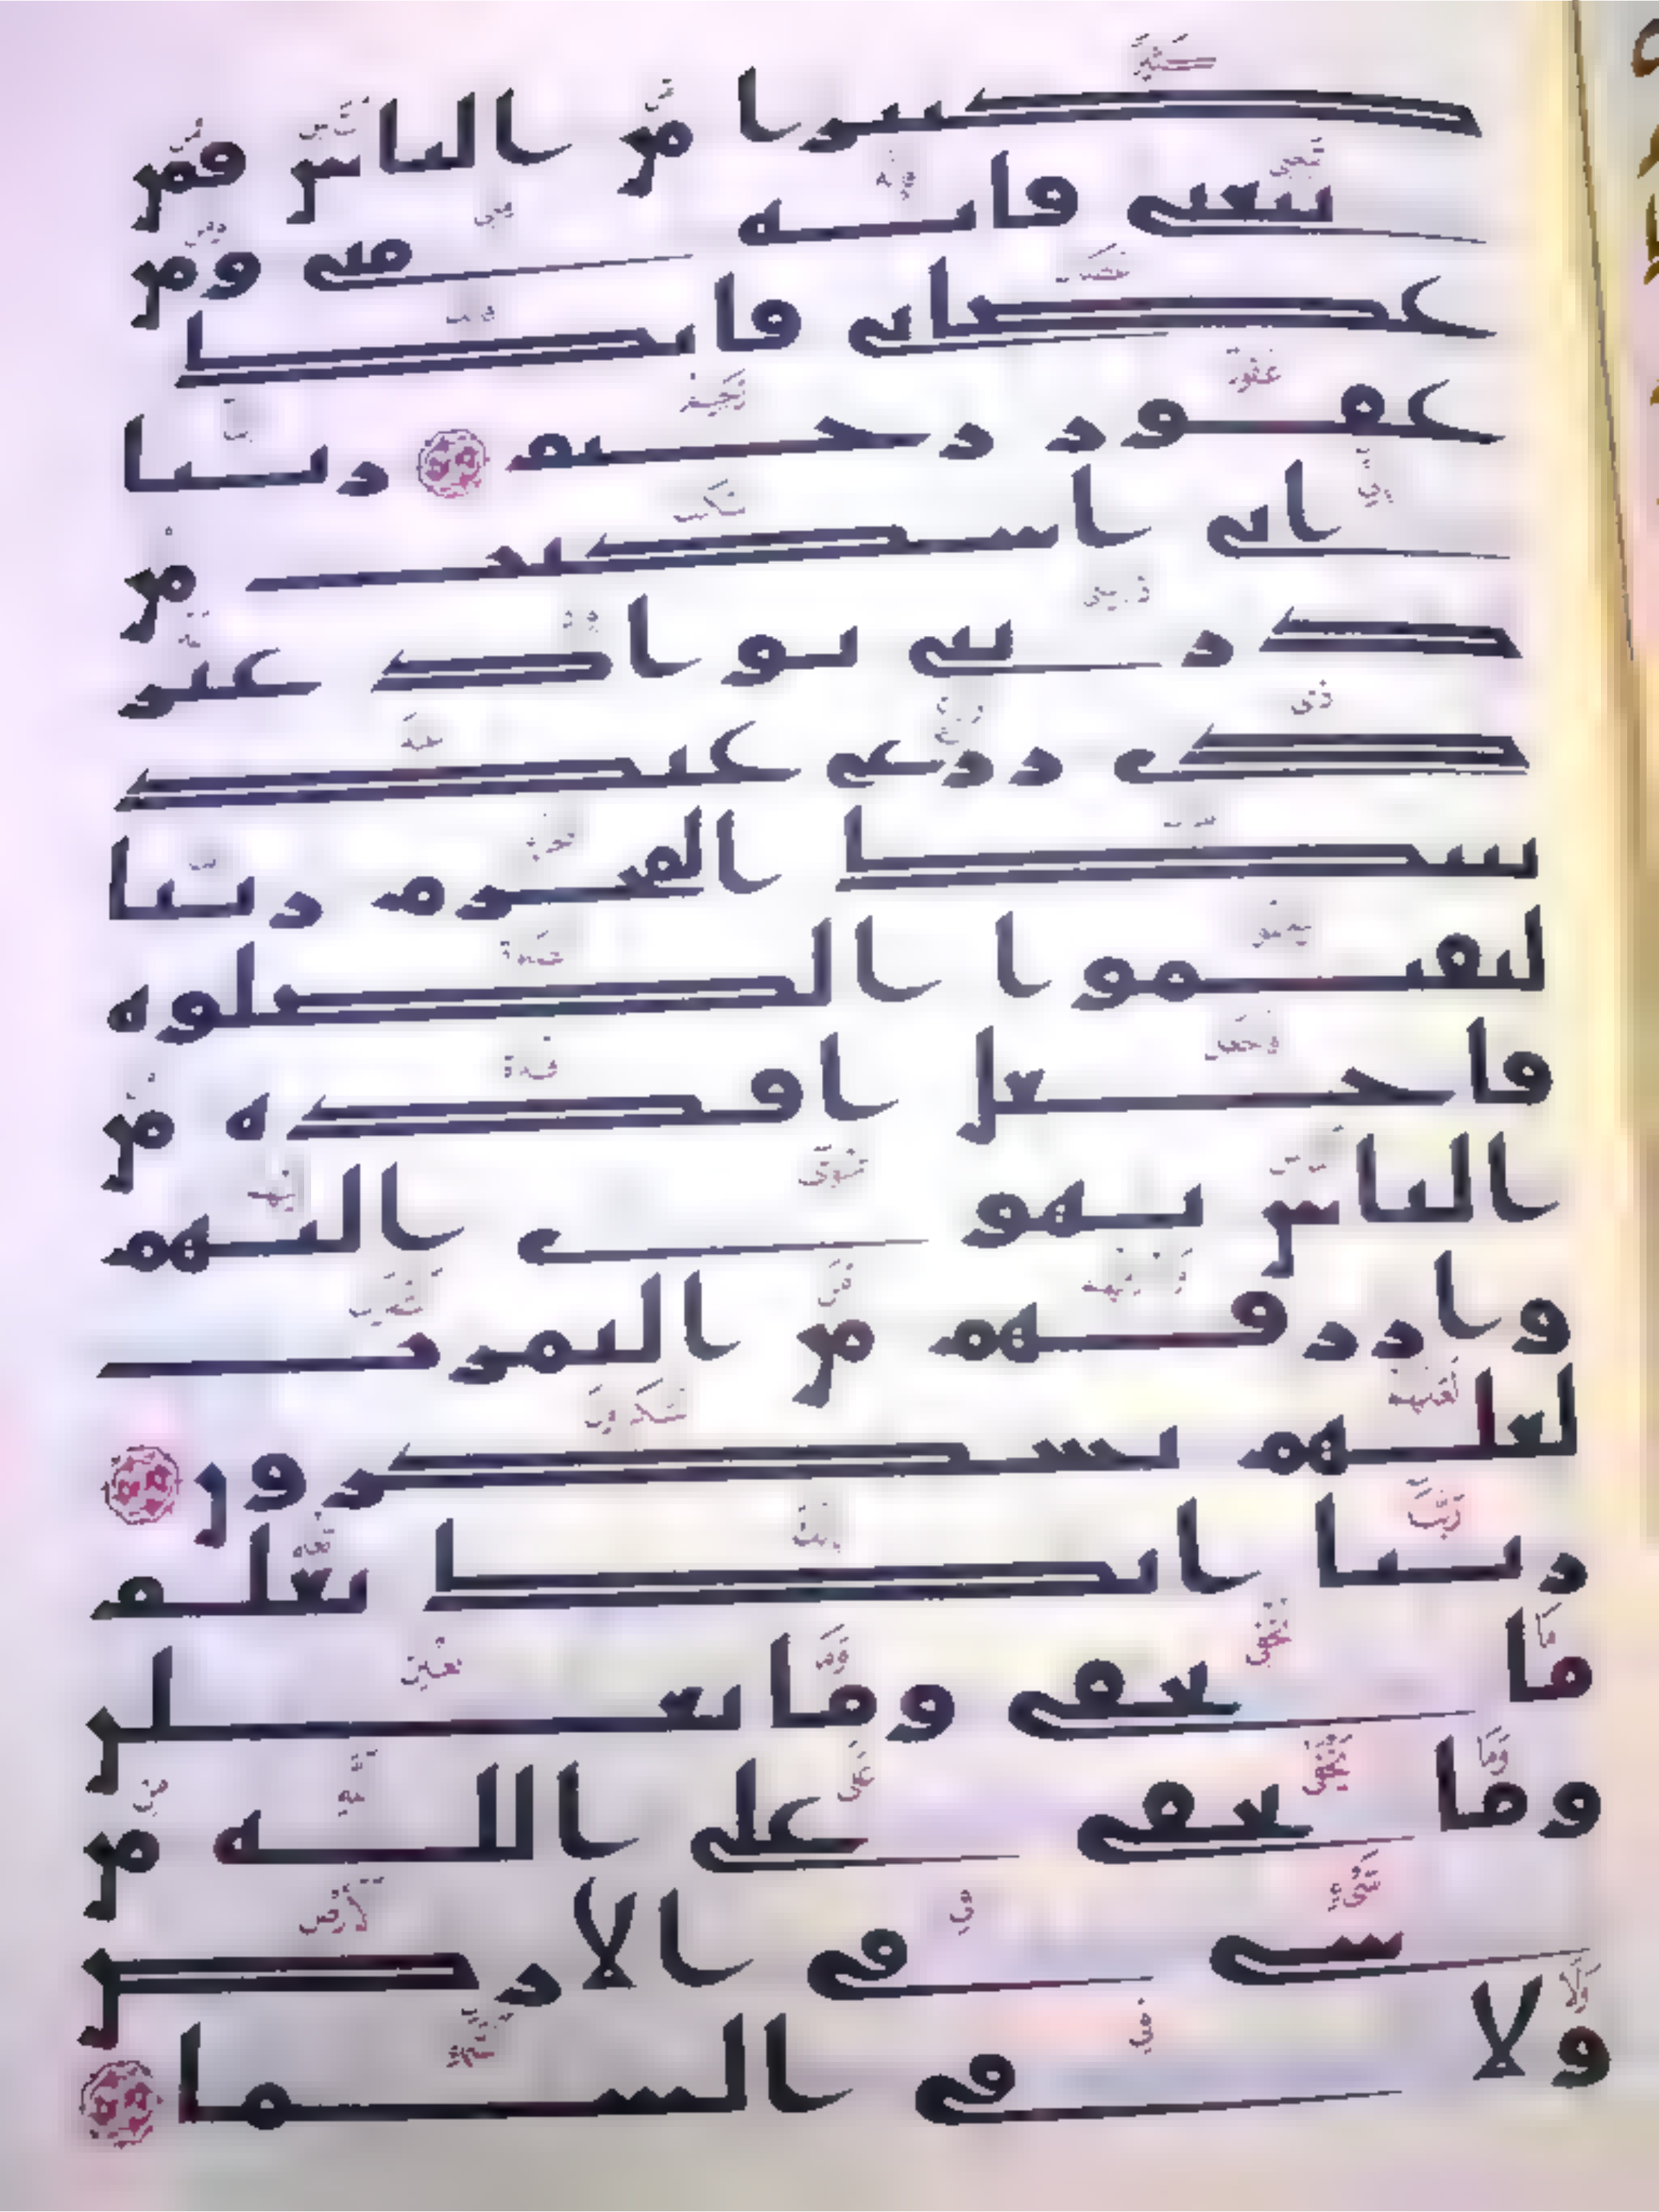 كثيرا من الناس فمن
تبعنى فانه منى ومن
عصانى فانك
غفور رحيم ربنا
انى اسكنت من
ذريتى بواد غير
ذى زرع عند
بيتك المحرم ربنا
ليقيموا الصلوة
فاجعل افدة من
الناس تهوى اليهم
وارزقهم من الثمرت
لعلهم يشكرون
ربنا انك تعلم
ما نخفى وما نعلن
وما يخفى على الله من
شى فى الارض
ولا فى السما